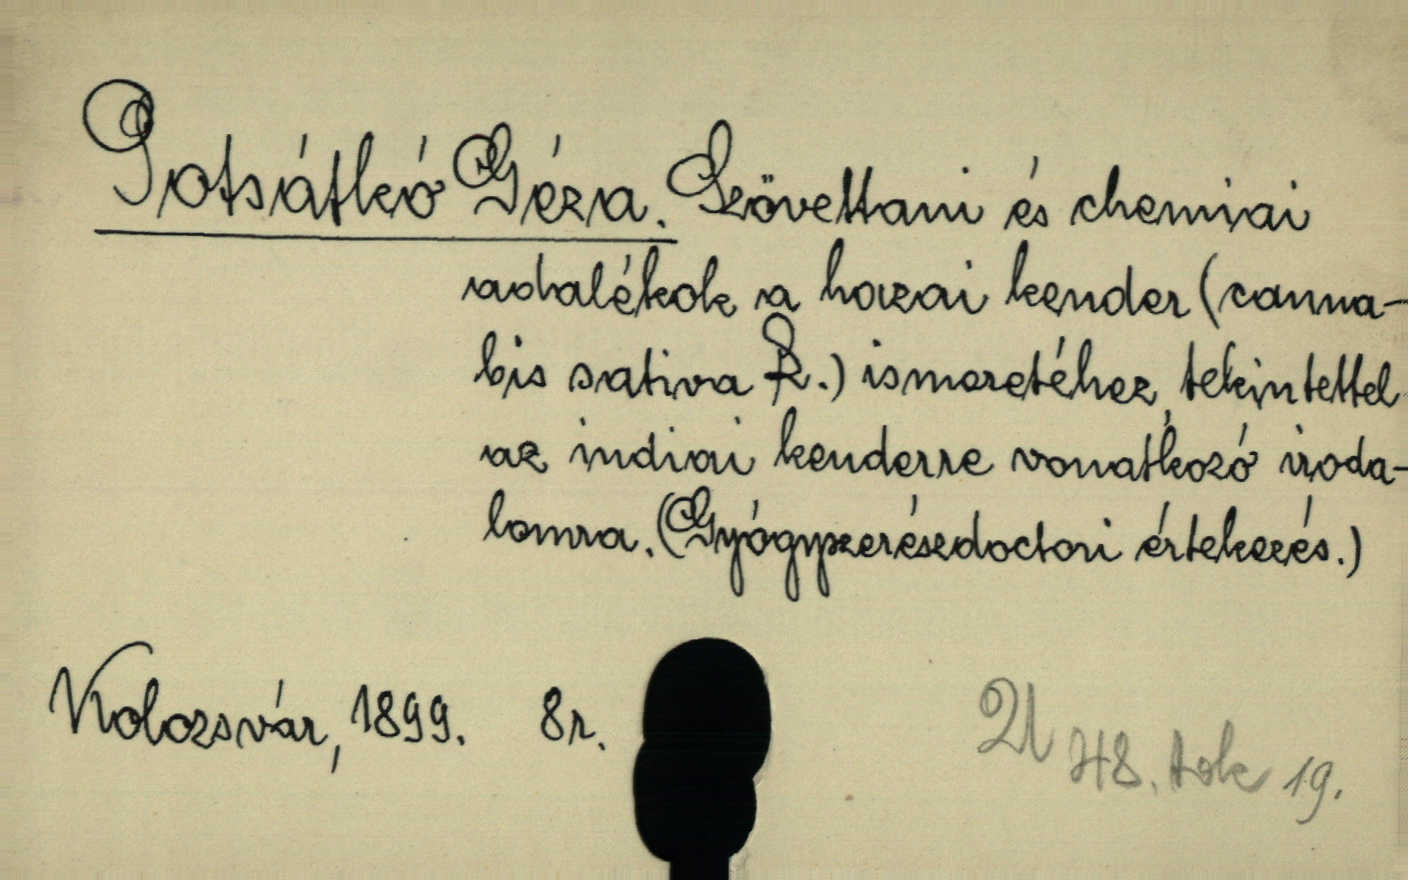 Potsátkó Géza. Szövettani és chemiai
adalékok a hazai kender (canna-
bis sativa L.) ismeretéhez, tekintettel
az indiai kenderre vonatkozó iroda-
lomra. (Gyógyszerészdoctori értekezés.)
Kolozsvár, 1899. 8r.
48. tok 19.